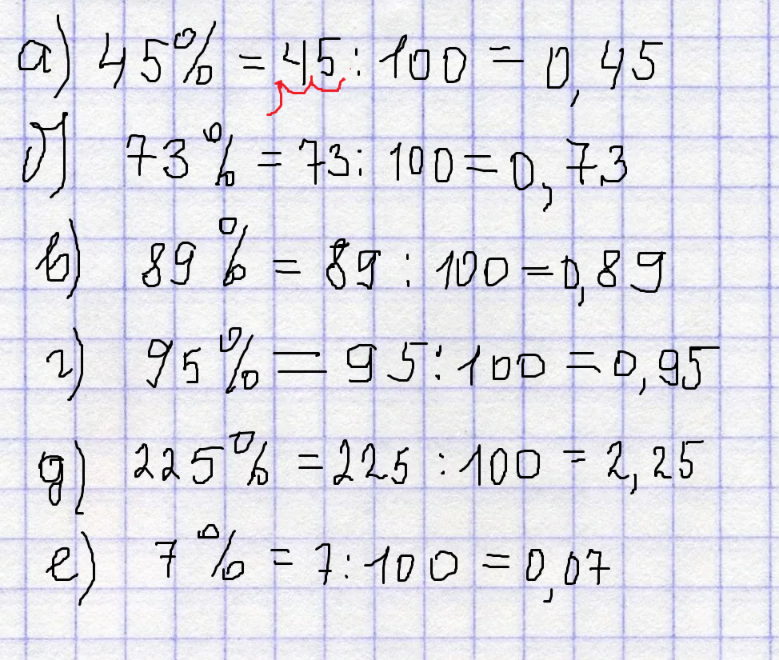 а) 45% = 45 : 100 = 0,45
б) 73% = 73 : 100 = 0,73
в) 89% = 89 : 100 = 0,89
г) 95% = 95 : 100 = 0,95
д) 225% = 225 : 100 = 2,25
е) 7% = 7 : 100 = 0,07